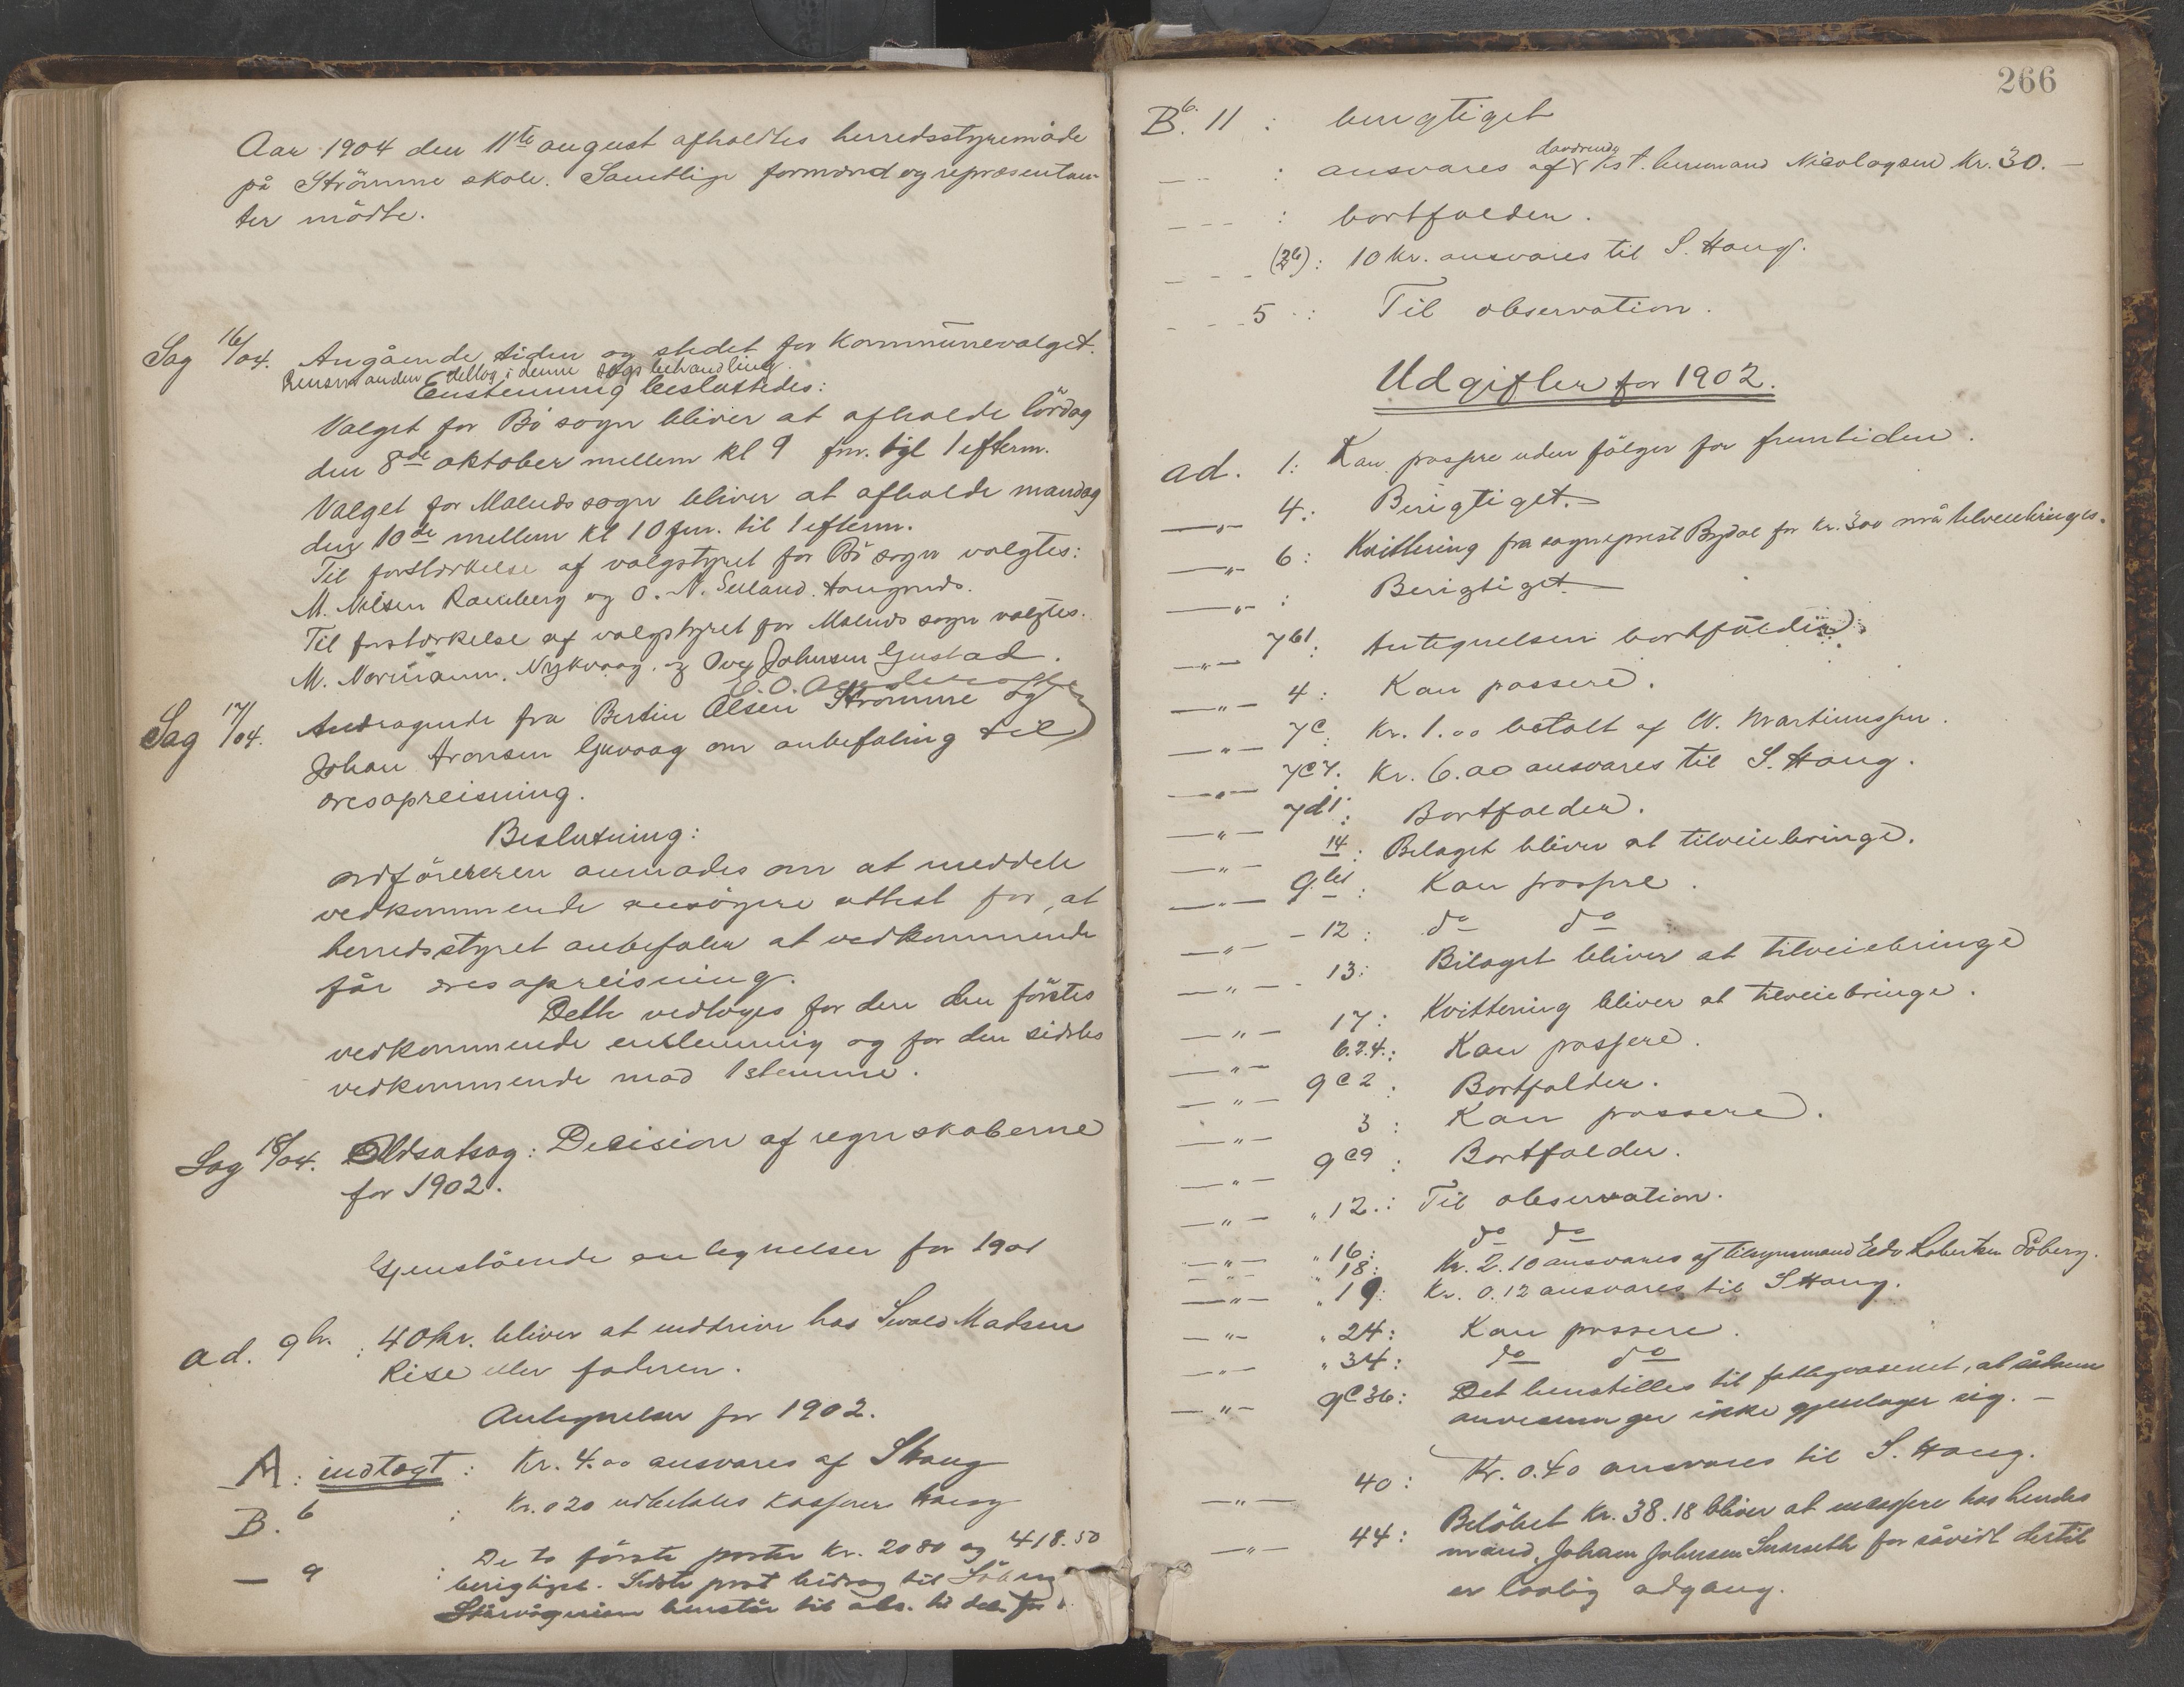 Aar 1904 den 11te august afholdtes herredsstyremöde
på Strömme skole. Samtlige formænd og repræsentan-
ter mödte.
Sag 16/04. Angående tiden og stedet for Kommunevalget.
Lensmanden deltog i denne sags behandling.
Enstemmig besluttedes:
Valget for Bö sogn bliver at afholde lördag
den 8de oktober mellem kl 9 fm. til 1 efterm.
Valget for Malnes sogn bliver at afholde mandag
den 10de mellem kl 10 fm. til 1 efterm.
Til forstærkelse af valgstyret for Bö sogn valgtes:
M. Nilsen Ramberg og O. N. Seeland.
Til forstærkelse af valgstyret for Malnes sogn valgtes.
M. Normann, Nykvaag. og Ove Johnsen Gustad.
Sag 17/04. Andragende fra Bertin Olsen Strömme og
Johan Aronsen Guvaag om anbefaling til
æresopreisning.
Beslutning:
ordföreren anmodes om at meddele
vedkommende ansögere attest for, at
herredsstyret anbefaler at vedkommende
får æresopreisning.
Dette vedtoges for den den förstes
vedkommende enstemmig og for den sidstes
vedkommende mod 1 stemme.
Sag 18/04. Udsatsag: Decision af regnskaberne
for 1902.
Gjenstående antegnelser for 1901
ad. 9 h. : 40 kr. bliver at inddrive hos Sivald Madsen
Rise eller faderen.
Antegnelser for 1902.
A: indtægt: Kr. 4.00 ansvares af S Haug
B. 6 : Kr. 0 20 udbetales kasserer Haug
— 9 : De to förste poster kr. 20 80 og 418.50
berigtiget. Sidste post bidrag til
henstår til obs. til
266
B.6. 11 : berigtiget
— : ansvares af daværende kst. lensmand Nicolaysen Kr. 30. —
— : bortfalder.
— (26): 10 kr. ansvares til S. Haug.
— 5 : Til observation.
Udgifter for 1902.
ad. 1: Kan passere uden fölger for fremtiden.
—"— 4: Berigtiget. —
—"— 6: Kvittering fra sogneprest Bydal for kr. 300 må tilveiebringes.
—"— : Berigtiget —
—"— 7b1: Antegnelsen bortfalder.
—"— 4: Kan passere.
—"— 7c: Kr. 1.00 betalt af N. Martinussen.
—"— 7c7: Kr. 6.00 ansvares til S. Haug.
—"— 7d1: Bortfalder.
—"— 14: Bilaget bliver at tilveiebringe.
—"— 9.b1: Kan passere.
—"— - 12: do do
—"— - 13: Bilaget bliver at tilveiebringe
—"— 17: Kvittering bliver at tilveiebringe.
—"— 6.2.4.: Kan passere.
—"— 9c2: Bortfalder.
—"— 3: Kan passere.
—"— 9c9: Bortfalder.
—"— "12.: Til observation.
—"— "16: do do
—"— "18: Kr. 2.10 ansvares af tilsynsmand Edv Robertsen Söberg.
—"— "19: Kr. 0.12 ansvares til S Haug.
—"— "24: Kan passere.
—"— "34: do do
—"— 9c36: Det henstilles til fattigvæsenet, at sådanne
anvisninger ikke gjentager sig. —
—"— 40: Kr. 0.40 ansvares til S. Haug.
—"— 44: Belöbet Kr. 38.18 bliver at indkassere hos hendes
mand, Johan Johnsen for såvidt dertil
er lovlig adgang.